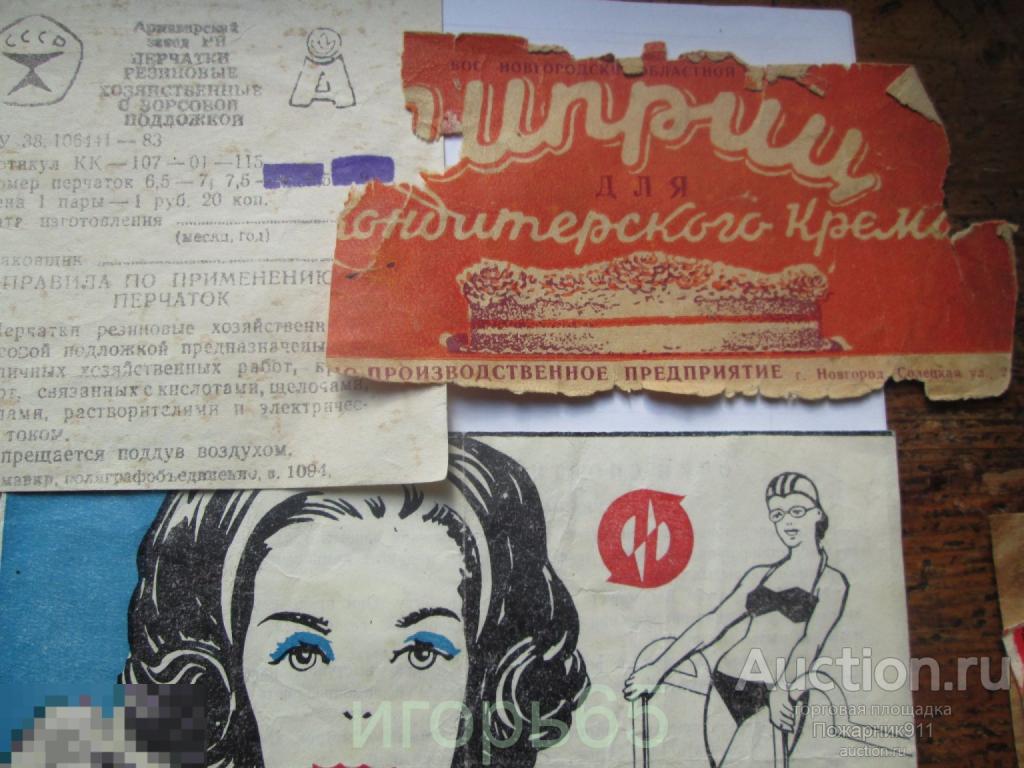 СССР
Армавирский
завод РИ
ПЕРЧАТКИ
РЕЗИНОВЫЕ
ХОЗЯЙСТВЕННЫЕ
С ВОРСОВОЙ
ПОДЛОЖКОЙ
У 38.106441—83
отикул КК—107—01—115
омер перчаток 6,5—7, 7,5—
ена 1 пары—1 руб. 20 коп.
изготовления
(месяц, год)
аковщик
ПРАВИЛА ПО ПРИМЕНЕНИЮ
ПЕРЧАТОК
Перчатки резиновые хозяйствен
совой подложкой предназначены
личных хозяйственных работ,
связанных с кислотами, щелочами,
лами, растворителями и электричес-
током.
прещается поддув воздухом.
мавир, полиграфобъединение, з. 1094,
ВОС НОВГОРОДСКИЙ ОБЛАСТНОЙ
Шприц
ДЛЯ
Кондитерского Крема
ПРОИЗВОДСТВЕННОЕ ПРЕДПРИЯТИЕ г. Новгород Солецкая ул.
игорь65
Auction.ru
торговая площадка
Пожарник911
auction.ru